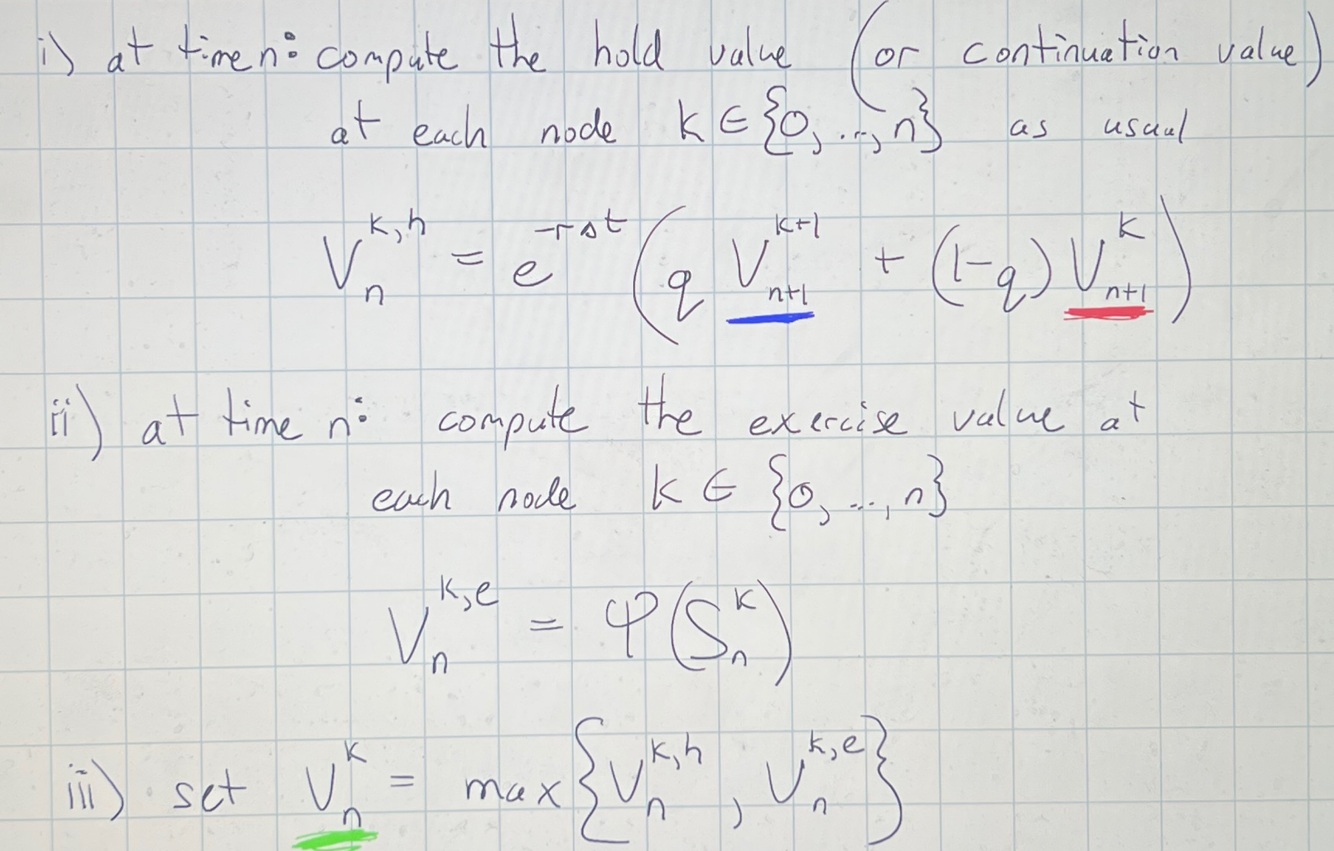 i) at time n: compute the hold value (or continuation value)
at each node k ∈ {0, ..., n} as usual
V_n^{k,h} = e^{-rΔt} (q V_{n+1}^{k+1} + (1-q) V_{n+1}^{k})
ii) at time n: compute the exercise value at
each node k ∈ {0, ..., n}
V_n^{k,e} = φ(S_n^k)
iii) set V_n^k = max{V_n^{k,h}, V_n^{k,e}}